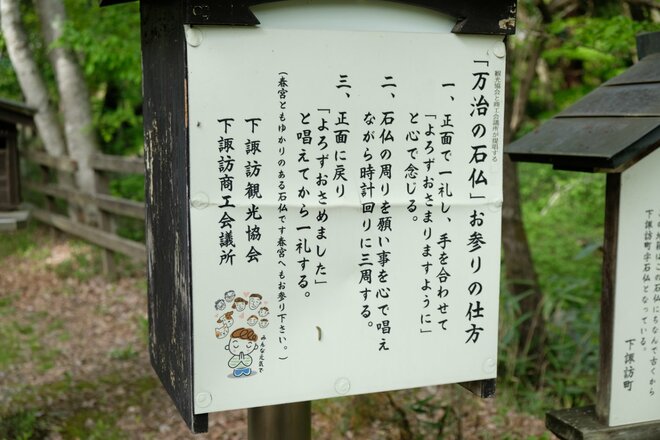 観光協会と商工会議所が提唱する
「万治の石仏」お参りの仕方
一、正面で一礼し、手を合わせて
「よろずおさまりますように」
と心で念じる。
二、石仏の周りを願い事を心で唱え
ながら時計回りに三周する。
三、正面に戻り
「よろずおさめました」
と唱えてから一礼する。
(春宮ともゆかりのある石仏です春宮へもお参り下さい。)
下諏訪観光協会
下諏訪商工会議所
みんな元気で
はこの石仏にちなんで古くから
下諏訪町字石仏となっている。
下諏訪町